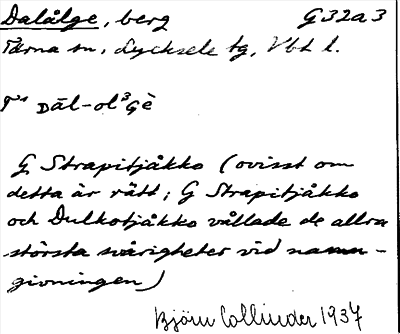 Dalålge, berg G32a3
Tärna sn, Lycksele tg, Vbt l.
Dāl-ol³Gè
G Strapitjåkko (ovisst om
detta är rätt; G Strapitjåkko
och Dulkotjåkko vållade de allra
största svårigheter vid namn-
givningen)
Björn Collinder 1937